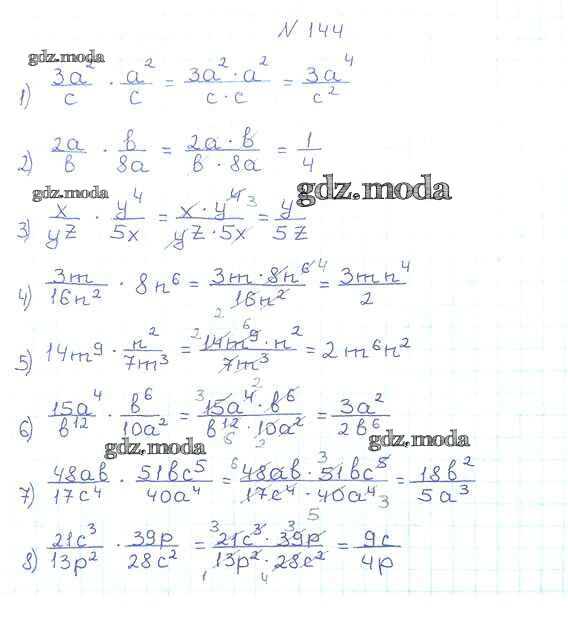 N 144
gdz.moda
1) 3a²/c · a²/c = 3a²·a²/c·c = 3a⁴/c²
2) 2a/b · b/8a = 2a·b/b·8a = 1/4
gdz.moda gdz.moda
3) x/yz · y⁴/5x = x·y⁴ 3/yz·5x = y/5z
4) 3m/16n² · 8n⁶ = 3m·8n⁶ 4/2 16n² = 3mn⁴/2
5) 14m⁹ · n²/7m³ = 2 14m⁹ 6·n²/7m³ = 2m⁶n²
6) 15a⁴/b¹² · b⁶/10a² = 3 15a⁴ 2·b⁶/b¹² 6·10a² 2 = 3a²/2b⁶
gdz.moda gdz.moda
7) 48ab/17c⁴ · 51bc⁵/40a⁴ = 6 48ab·3 51bc⁵/17c⁴·40a⁴ 3 5 = 18b²/5a³
8) 21c³/13p² · 39p/28c² = 3 21c³·3 39p/1 13p²·4 28c² = 9c/4p